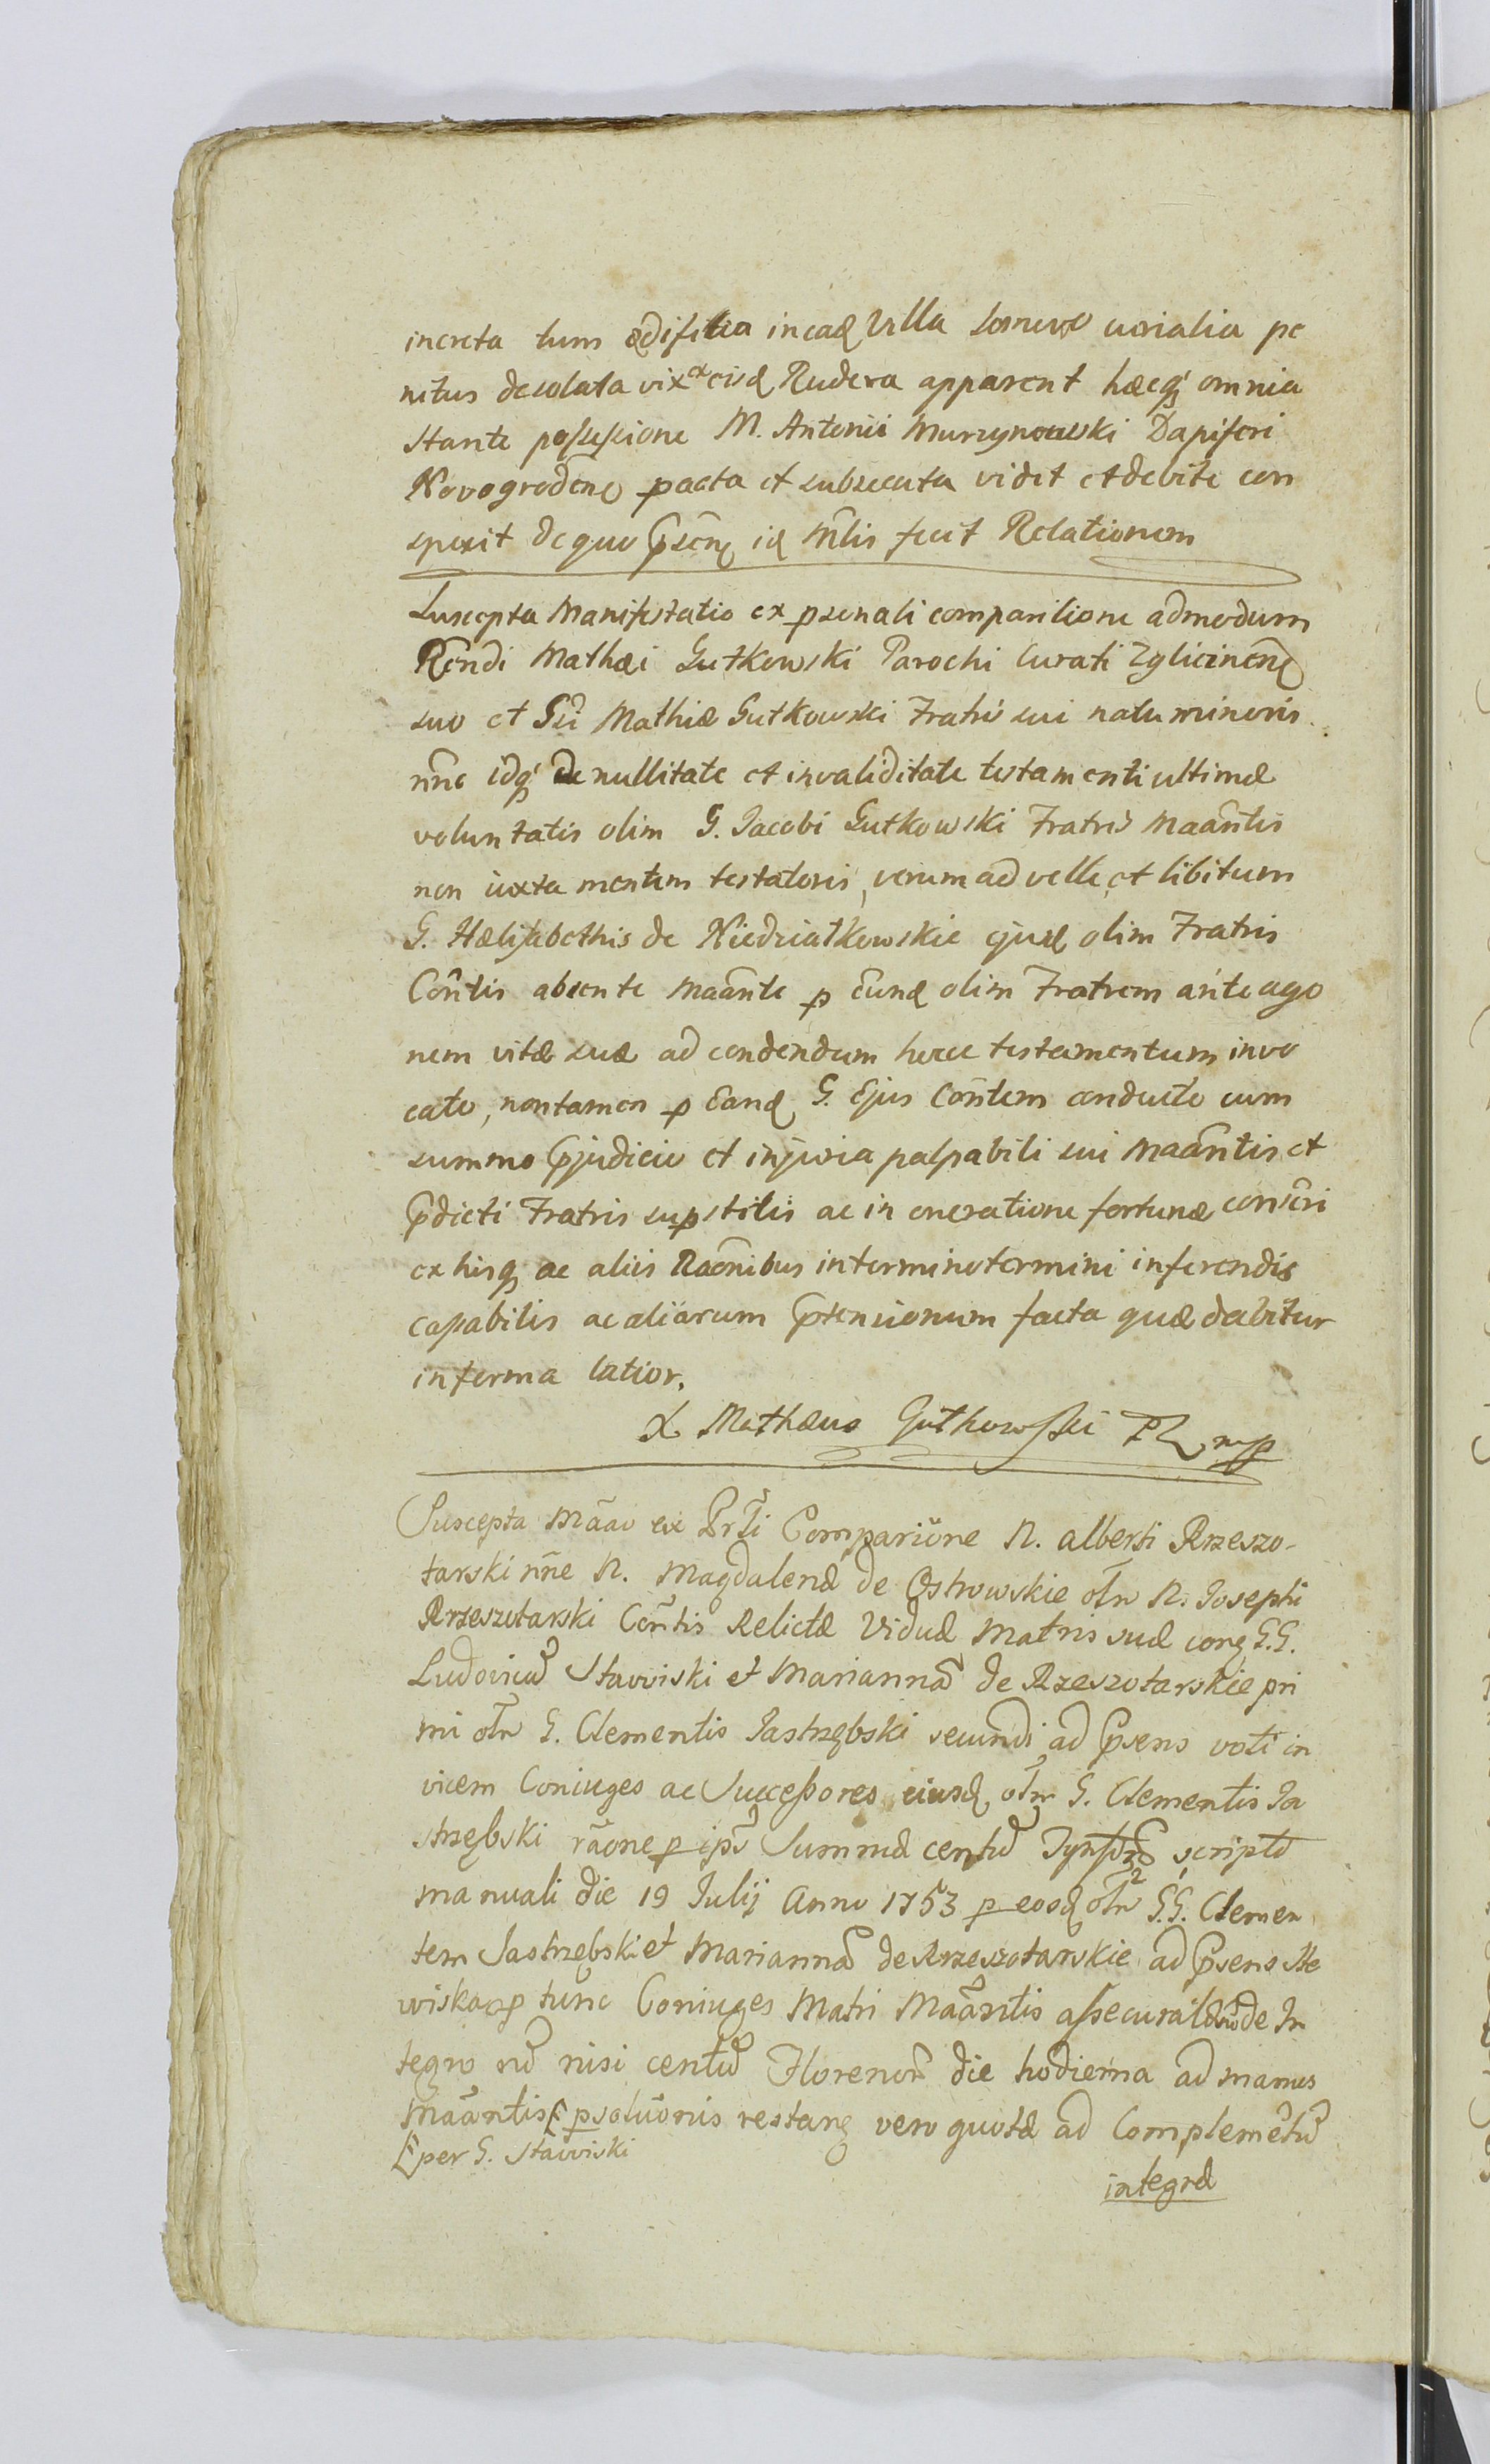 increta tum ædificia in ead Villa Lornewo curialia pe
nitus desolata vix ex eisd Rudera apparent hæcq; omnia
stante possessione M. Antonii Murzynowski Dapiferi
Novogroden pacta et subsecuta vidit et debite con
spexit de quo p̃sen id Mlis fecit Relationem
Suscepta Manifestatio ex psonali comparitione admodum
Rñdi Mathæi Gutkowski Parochi Curati Zglicinen
suo et Gsi Mathiæ Gutkowski Fratris sui natu minoris
nñe idq; de nullitate et invaliditate testamenti ultimæ
voluntatis olim G. Jacobi Gutkowski Fratris Maãntis
non iuxta mentem testatoris, verum ad velle et libitum
G. Hælisabethis de Niedziałkowskie ejusd olim Fratris
Cõntis absente Maãnte p eund olim Fratrem ante ago
nem vitæ suæ ad condendum hocce testamentum invo
cato, non tamen p Eand G. Ejus Cõntem conducto cum
summo p̃judicio et injuria palpabili sui Maãntis et
p̃dicti Fratris supstitis ac in oneratione fortunæ conscri
ex hisq ac aliis Raõnibus in termino termini inferendis
capabilis ac aliarum p̃tensionum facta quæ dabitur
in forma latior.
X Mathæus Gutkowski PZ mp
Suscepta Mãão ex Prli Comparitione N. Alberti Rzeszo-
tarski nñe N. Magdalenæ de Ostrowskie olim N. Josephi
Rzeszotarski Cõntis Relictæ Viduæ Matris suæ cong G.G.
Ludovicũ Stawiski et Mariannã de Rzeszotarskie pri
mi olim G. Clementis Jastrzębski secundi ad p̃sens voti in
vicem Coniuges ac Successores eiusd olim G. Clementis Ja
strzębski rãone p ips Summæ centũ Tynforũ scripto
manuali die 19 Julij Anno 1753 p eosd olim G.G. Clemen
tem Jastrzębski et Mariannã de Rzeszotarskie ad p̃sens Sta
wiska p tunc Coniuges Matri Maãntis assecurat de In
tegro nũ nisi centũ Florenorũ die hodierna ad manus
Maãntis psolutionis restang vero quotæ ad Complemetũ
per G. Stawiski
integræ